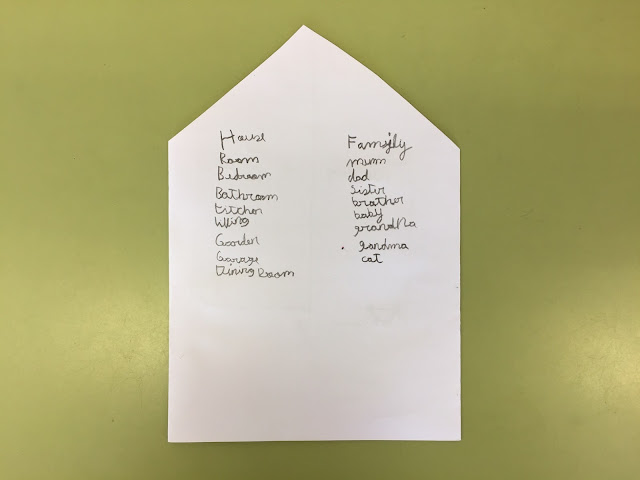 House
Room
Bedroom
Bathroom
kitchen
living
Gooden
Garage
Dining Room
Famijly
mum
dad
sister
brather
baby
grandpa
grandma
cat